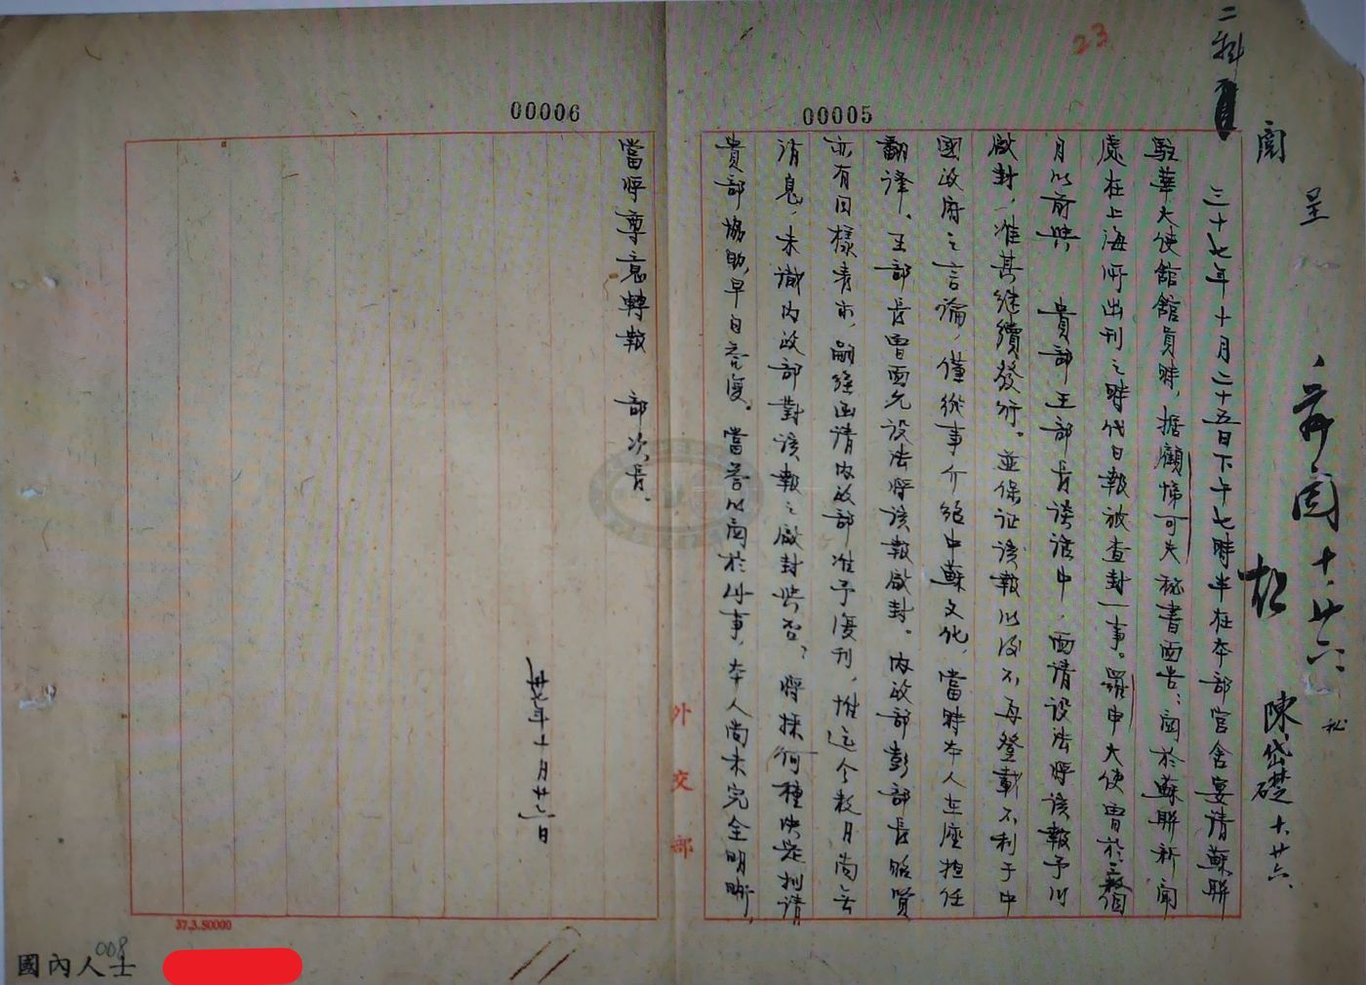 二科
閱
呈
弟閱 十、廿六
松
陳岱礎 十、廿六
23
00005
三十七年十月二十五日下午七時半在本部官舍宴請蘇聯
駐華大使館館員時，據顧悌可夫秘書面告：關於蘇聯新聞
處在上海所出刊之時代日報被查封一事。羅申大使曾於數個
月以前與 貴部王部長談話中，面請設法將該報予以
啟封，准其繼續發行。並保証該報以後不再登載不利于中
國政府之言論，僅從事介紹中蘇文化，當時本人在座担任
翻譯。王部長曾面允設法將該報啟封。內政部彭部長昭賢
亦有同樣表示，嗣經函請內政部准予復刊，惟迄今數月尚無
消息，未識內政部對該報之啟封與否，將採何種決定擬請
貴部協助，早日答復。當答以關於此事，本人尚未完全明晰，
外交部
00006
當將尊意轉報 部次長。
卅七年十月廿六日
37.3.50000
國內人士
008